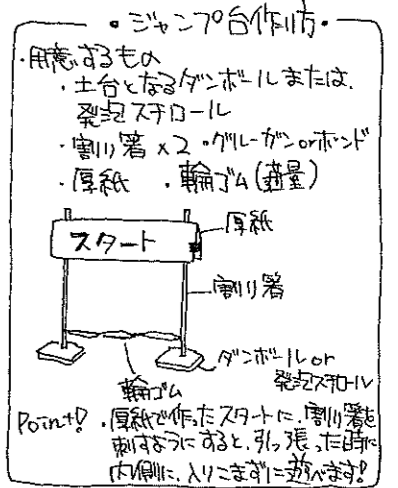 ・ジャンプ台作り方・
・用意するもの
・土台となるダンボールまたは、
発泡スチロール
・割り箸×2 ・グルーガンorボンド
・厚紙 ・輪ゴム(適量)
厚紙
スタート
割り箸
ダンボールor
発泡スチロール
輪ゴム
Point!! ・厚紙で作ったスタートに、割り箸を
刺すようにすると、引っ張った時に
内側に、入りこまずに遊べます!